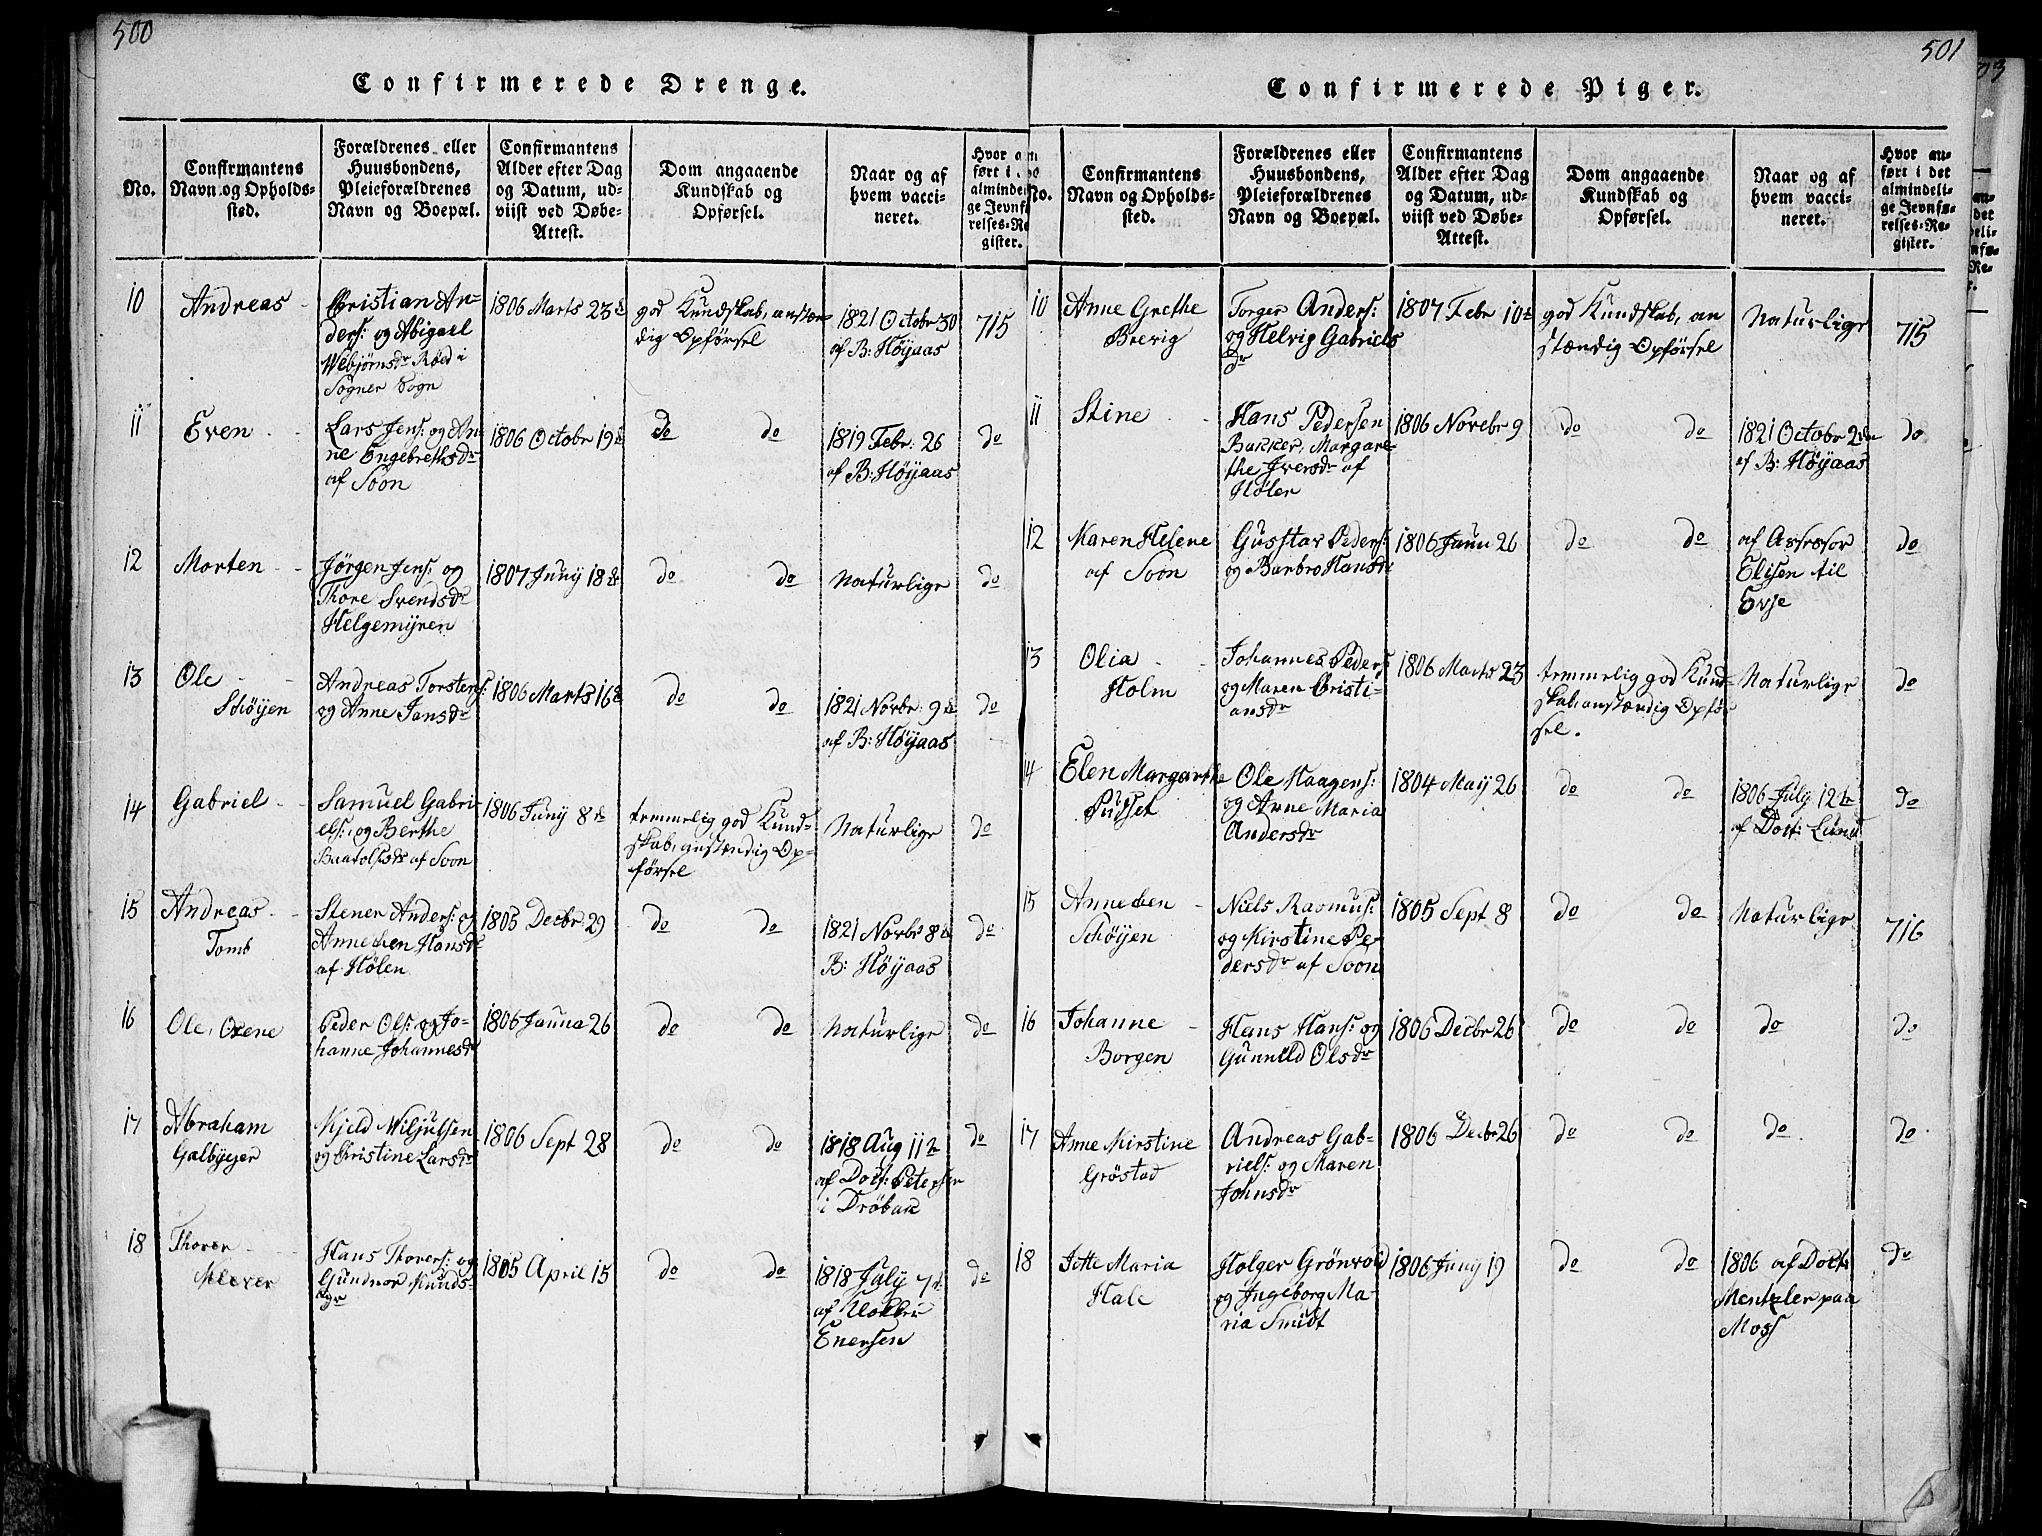 500
Confirmerede Drenge.
No.
Confirmantens
Navn og Opholds-
sted.
Forældrenes eller
Huusbondens,
Pleieforældrenes
Navn og Boepæl.
Confirmantens
Alder efter Dag
og Datum, ud-
viist ved Døbe-
Attest.
Dom angaaende
Kundskab og
Opførsel.
Naar og af
hvem vacci-
neret.
Hvor an
ført i
almindel
ge Jevnf
relses-Re
gister.
10
Andreas
Christian An-
ders: og Abigael
Webjørnsdr Røed i
Sogner Sogn
1806 Marts 23de
god Kundskab, anstæn
dig Opførsel
1821 Octobr 30
af B: Höyaas
715
11
Even
Lars Jens: og An-
ne Engebrethsdr
af Soon
1806 Octobr 19de
do do
1819 Febr: 26
af B: Höyaas
do
12
Morten
Jørgen Jens: og
Thore Svendsdr
Helgemyren
1807 Juny 18de
do do
Naturlige
do
13
Ole
Schöyen
Andreas Torstens:
og Anne Jansdr
1806 Marts 16de
do do
1821 Novbr: 9de
af B: Höyaas
do
14
Gabriel
Samuel Gabri-
els: og Berthe
Baatolfsdr af Soon
1806 Juny 8de
temmelig god Kund-
skab, anstændig Op-
førsel
Naturlige
do
15
Andreas
Tomb
Stener Anders: og
Annechen Hansdr
af Hölen
1805 Decbr 29
do do
1821 Novbr 8de
B: Höyaas
do
16
Ole, Oxene
Peder Ols: og Jo-
hanne Johannesdr
1806 Janna 26
do do
Naturlige
do
17
Abraham
Galbyejer
Kjeld Wiljulsen
og Christine Larsdr
1806 Sept 28
do do
1818 Aug 11te
af Doct: Petersen
i Dröbak
do
18
Thorer
Klever
Hans Thorers: og
Gundnor Knuds-
dr
1805 April 15
do do
1818 July 7de
af
Enersen
do
501
Confirmerede Piger.
No.
Confirmantens
Navn og Opholds-
sted.
Forældrenes eller
Huusbondens,
Pleieforældrenes
Navn og Boepæl.
Confirmantens
Alder efter Dag
og Datum, ud-
viist ved Døbe-
Attest.
Dom angaaende
Kundskab og
Opførsel.
Naar og af
hvem vacci-
neret.
Hvor an-
ført i det
almindeli-
ge Jevnfø-
relses-Re-
gister.
10
Anne Grethe
Brevig
Torger Anders:
og Helvig Gabriels
dr
1807 Febr 10de
god Kundskab, an
stændig Opførsel
Naturlige
715
11
Stine
Hans Pedersen
Bakker, Margare-
the Iversdr af
Høler
1806 Novebr 9
do do
1821 Octobr 2den
af B: Höyaas
do
12
Maren Helene
af Soon
Gusstav Peders:
og Barbro Hansdr
1806 Jann 26
do do
af Assessor
Elisen til
Evje
do
13
Olia
Holm
Johannes Peders:
og Maren Christi-
ansdr
1806 Marts 23
temmelig god Kund-
skab, anstændig Opfør
sel.
Naturlige
do
14
Elen Margarthe
Pudset
Ole Haagens:
og Anne Maria
Andersdr
1804 May 26
do do
1806 July 12te
af Doct: Lund
do
15
Annechen
Schöyen
Niels Rasmus:
og Kirstine Pe-
dersdr af Soon
1805 Sept 8
do do
Naturlige
716
16
Johanne
Borgen
Hans Hans: og
Gunnild Olsdr
1806 Decbr 26
do do
do
do
17
Anne Kirstine
Gröstad
Andreas Gab-
riels: og Maren
Johnsdr
1806 Decbr 26
do do
do
do
18
Jotte Maria
Hale
Holger Grönvold
og Ingeborg Ma-
ria Smidt
1806 Juny 19
do do
1806 af Doct:
Mentzler paa
Moss
do